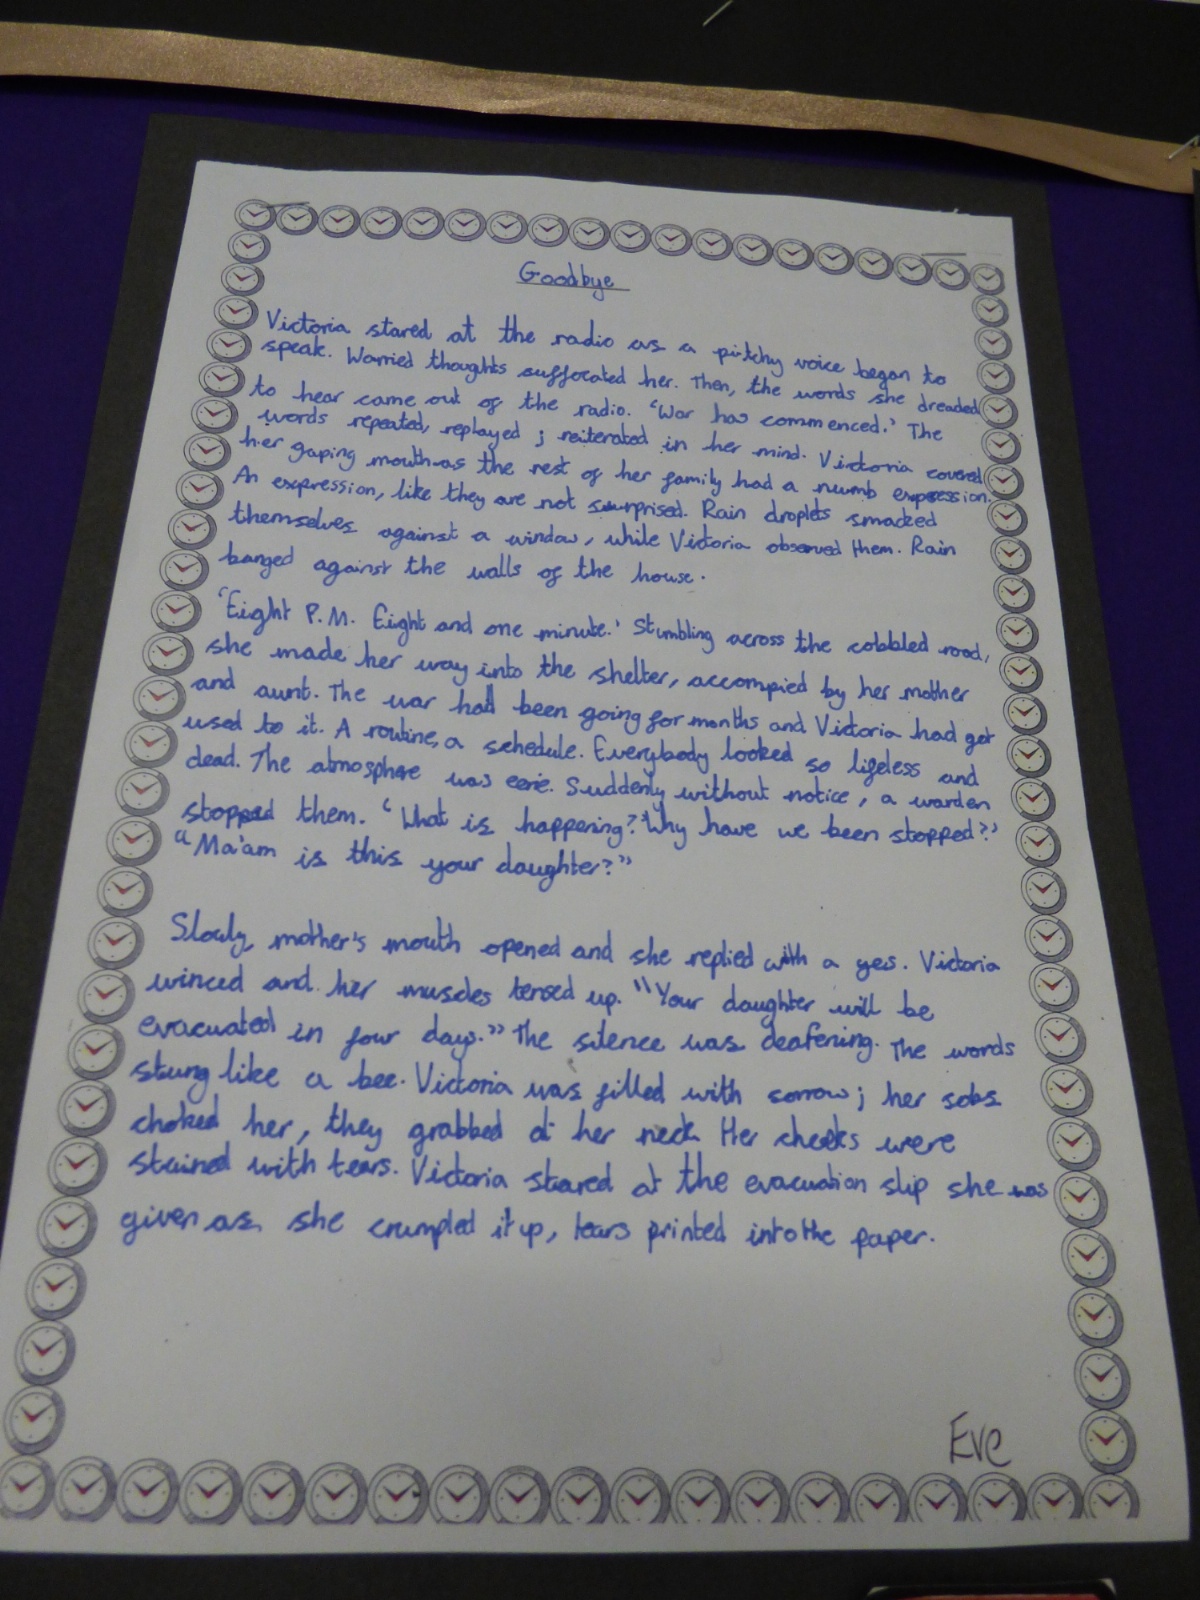 Goodbye
Victoria stared at the radio as a pitchy voice began to
speak. Worried thoughts suffocated her. Then, the words she dreaded
to hear came out of the radio. 'War has commenced.' The
words repeated, replayed ; reiterated in her mind. Victoria covered
her gaping mouth as the rest of her family had a numb expression.
An expression, like they are not surprised. Rain droplets smacked
themselves against a window, while Victoria observed them. Rain
banged against the walls of the house.
'Eight P.M. Eight and one minute.' Stumbling across the cobbled road,
she made her way into the shelter, accompied by her mother
and aunt. The war had been going for months and Victoria had got
used to it. A routine, a schedule. Everybody looked so lifeless and
dead. The atmosphere was eerie. Suddenly without notice, a warden
stopped them. 'What is happening? Why have we been stopped?'
"Ma'am is this your daughter?"
Slowly, mother's mouth opened and she replied with a yes. Victoria
winced and her muscles tensed up. "Your daughter will be
evacuated in four days." The silence was deafening. The words
stung like a bee. Victoria was filled with sorrow; her sobs
choked her, they grabbed at her neck. Her cheeks were
stained with tears. Victoria stared at the evacuation slip she was
given as she crumpled it up, tears printed into the paper.
Eve